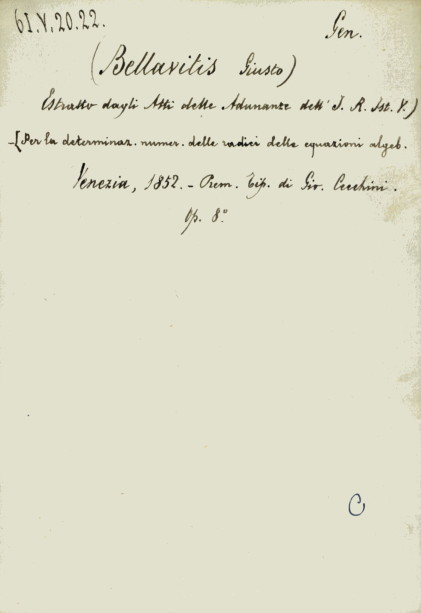 61.V.20.22.
Gen.
(Bellavitis Giusto)
Estratto dagli Atti delle Adunanze dell' I. R. Ist. V.)
-[Per la determinaz. numer. delle radici delle equazioni algeb.
Venezia, 1852. - Prem. Tip. di Gio. Cecchini.
Op. 8°
C